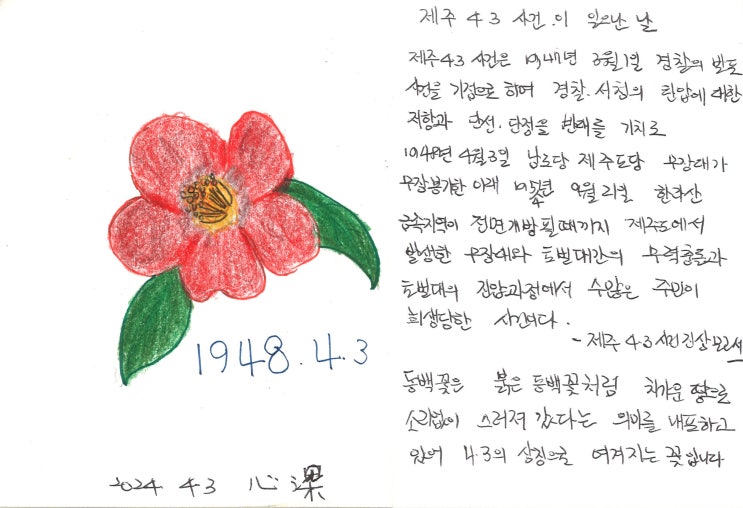 1948.4.3
2024 4.3 心課
제주 4 3 사건.이 일으난 날
제주43 사건은 1947년 3월1일 경찰의 발포
사건을 기점으로 하며 경찰.서청의 탄압에 대한
저항과 단선.단정을 반대를 기치로
1948년 4월3일 남로당 제주도당 무장대가
무장봉기한 이래 1954년 9월 21일 한라산
금족지역이 전면개방될때까지 제주도에서
발생한 무장대와 토벌대간의 무력충돌과
토벌대의 진압과정에서 수많은 주민이
희생당한 사건이다.
- 제주 43사건진상보고서
동백꽃은 붉은 동백꽃처럼 차가운 땅으로
소리없이 스러져 갔다는 의미를 내포하고
있어 4.3의 상징으로 여겨지는 꽃입니다